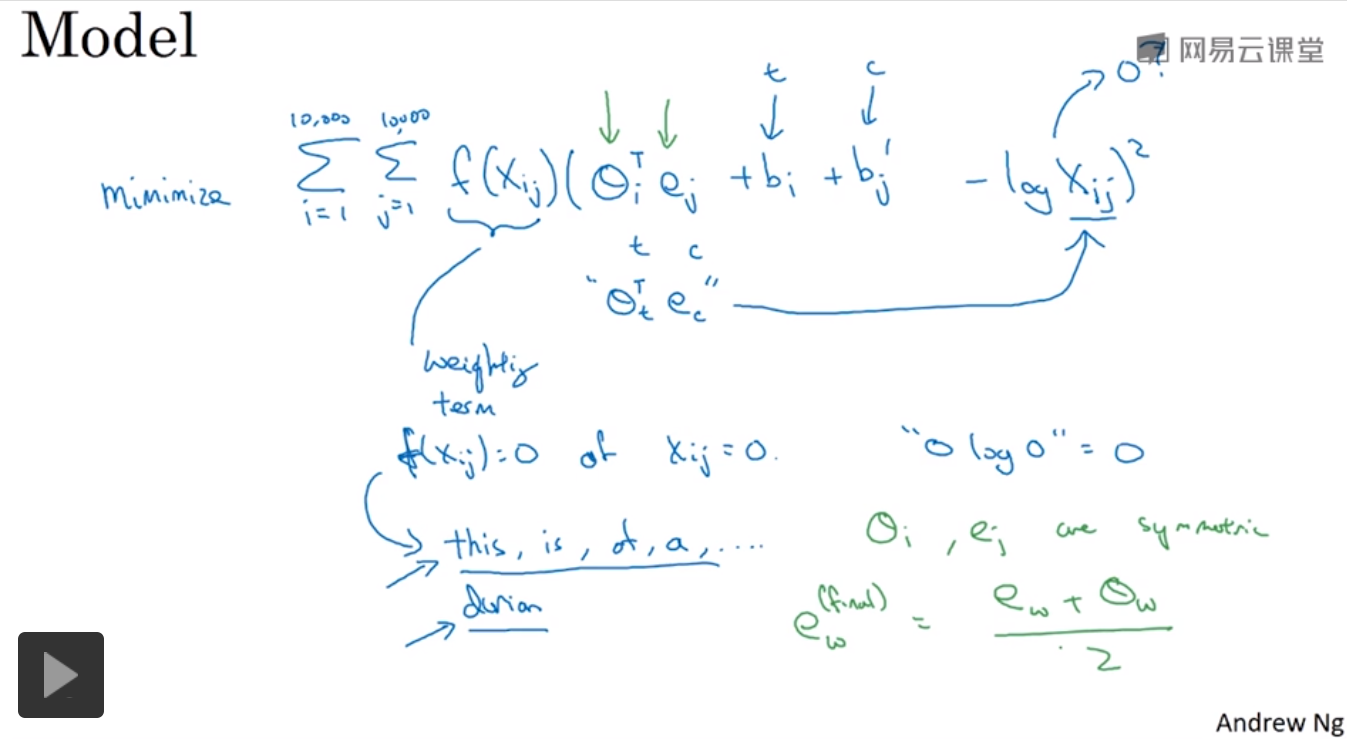 Model
网易云课堂
t c 0?
minimize 10,000 Σ i=1 10,000 Σ j=1 f(Xij)(θiᵀ ej + bi + bj' - log Xij)²
t c
"θtᵀ ec"
weighting
term
f(Xij)=0 if Xij=0. "0 log 0" = 0
this, is, of, a, ....
θi, ej are symmetric
durian
ew(final) = ew + θw / 2
Andrew Ng